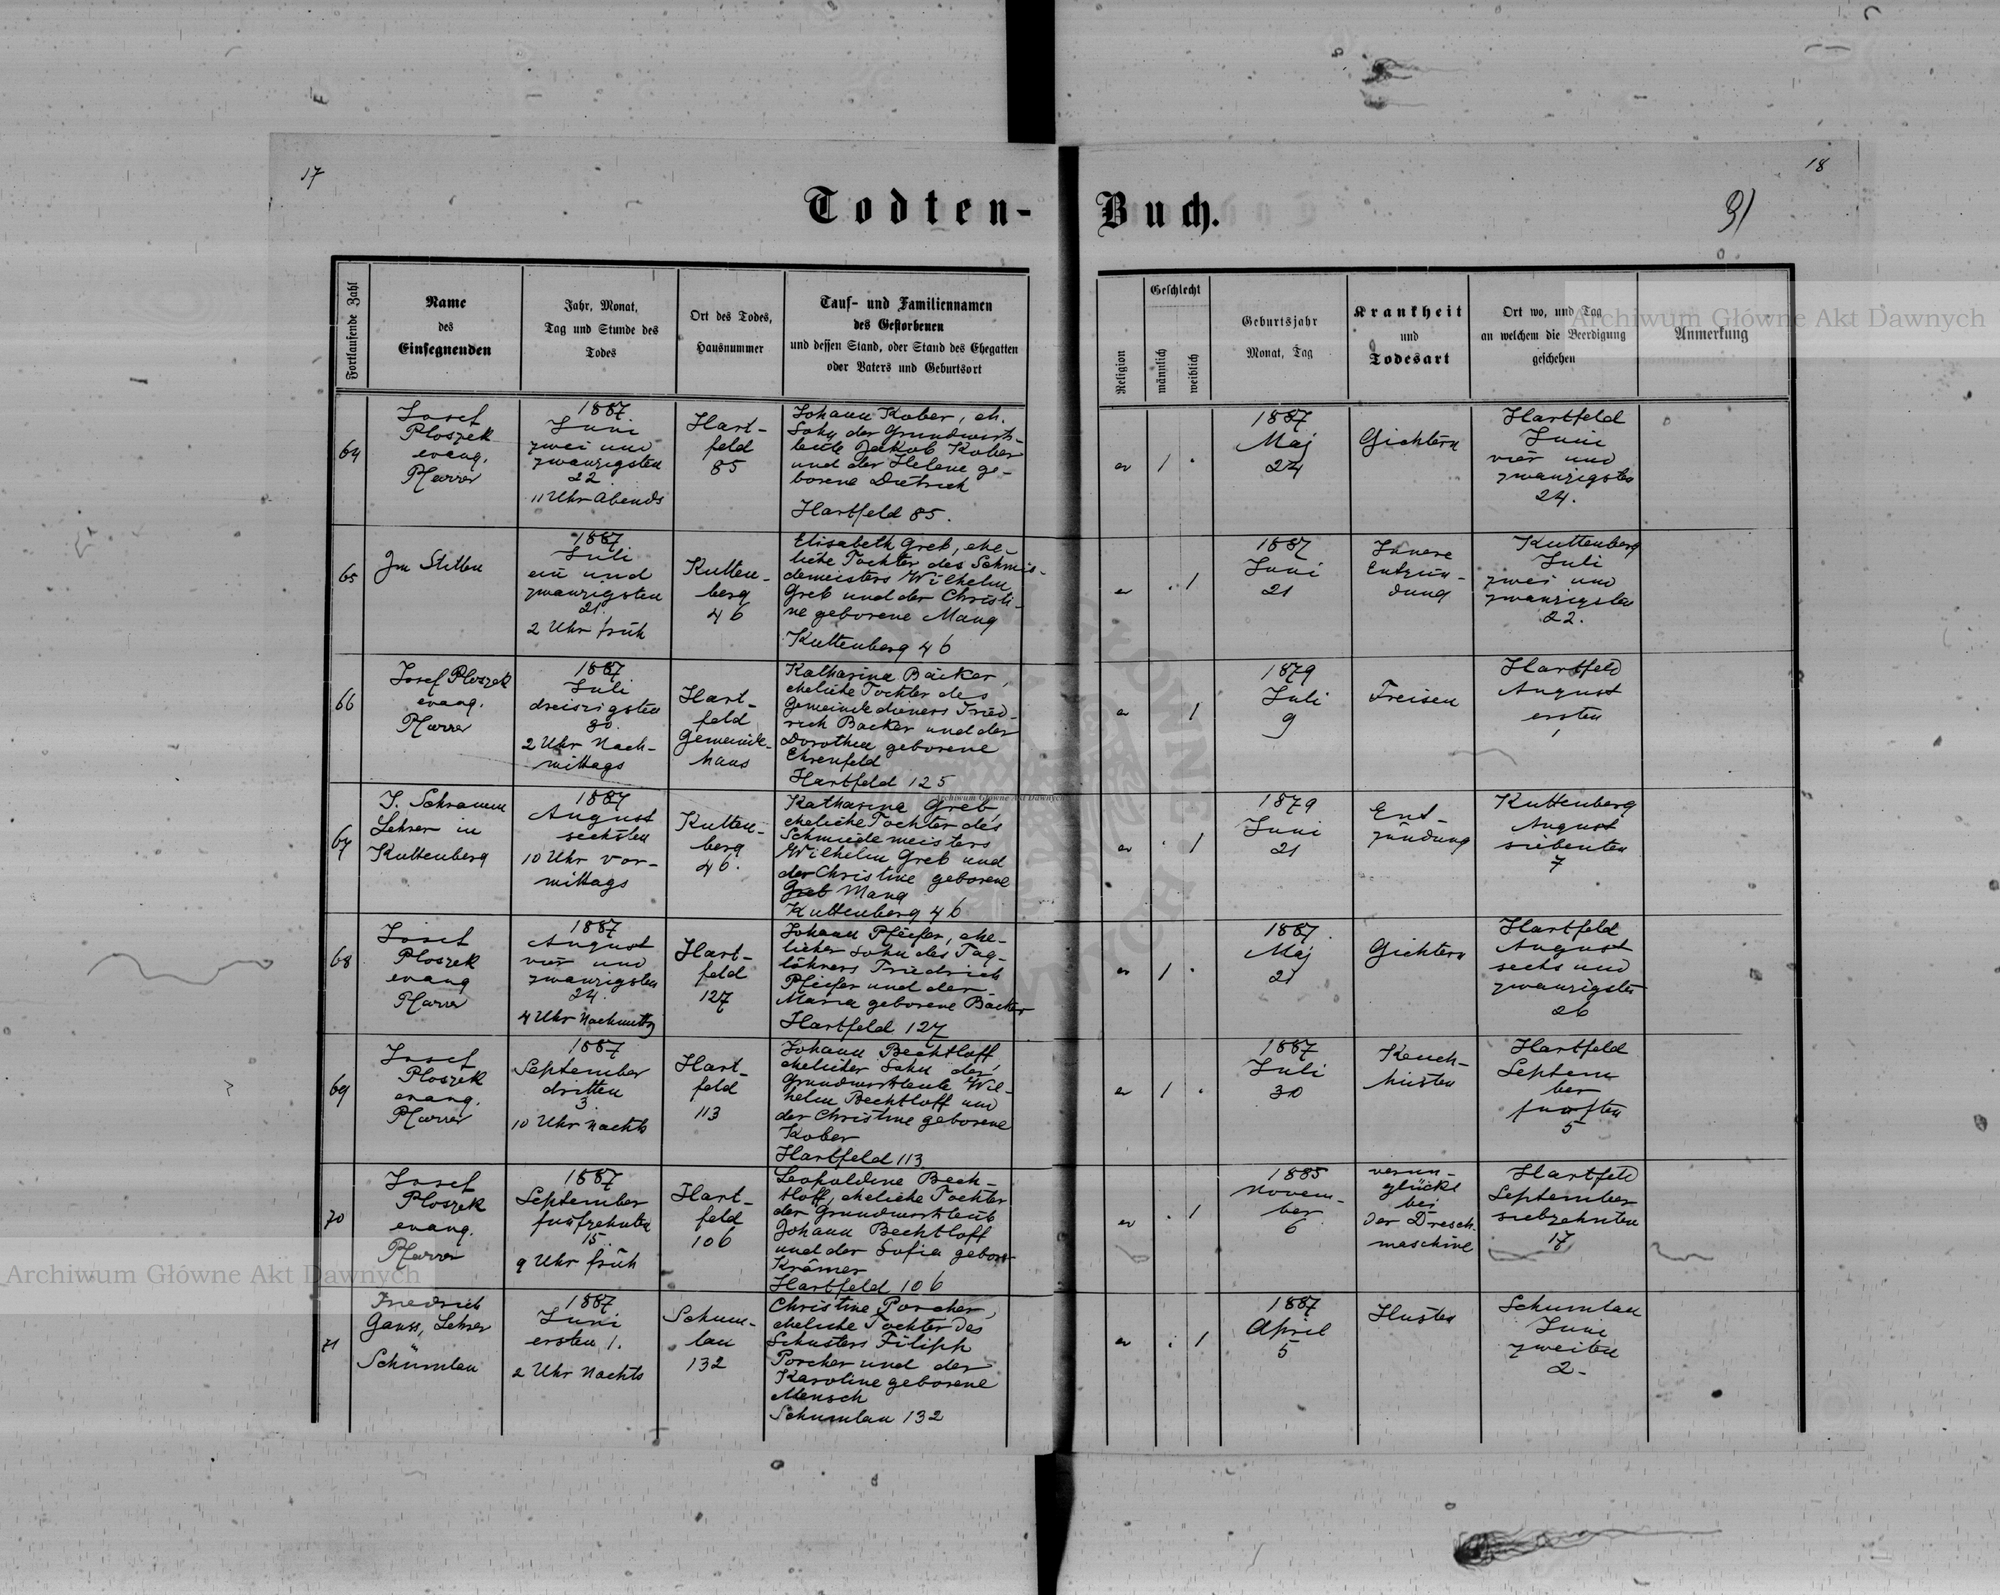 17
18
Todten-Buch.
91
Fortlaufende Zahl
Name
des
Einsegnenden
Jahr, Monat,
Tag und Stunde des
Todes
Ort des Todes,
Hausnummer
Tauf- und Familiennamen
des Gestorbenen
und dessen Stand, oder Stand des Ehegatten
oder Vaters und Geburtsort
Religion
Geschlecht
männlich
weiblich
Geburtsjahr
Monat, Tag
Krankheit
und
Todesart
Ort wo, und Tag
an welchem die Beerdigung
geschehen
Anmerkung
64
Josef
Ploszek
evang.
Pfarrer
1887
Juni
zwei und
zwanzigsten
22.
11 Uhr Abends
Hart-
feld
85
Johann Kober, eh.
Sohn der Grundwirts-
leute Jakob Kober
und der Helene ge-
borene Dietrich
Hartfeld 85.
ev
1
1887
Maj
24
Gichtern
Hartfeld
Juni
vier und
zwanzigsten
24.
65
Im Stillen
1887
Juli
ein und
zwanzigsten
21.
2 Uhr früh
Kutten-
berg
46
Elisabeth Greb, ehe-
liche Tochter des Schmie-
demeisters Wilhelm
Greb und der Christi-
ne geborene Mang
Kuttenberg 46
ev
1
1887
Juni
21
Innere
Entzün-
dung
Kuttenberg
Juli
zwei und
zwanzigsten
22.
66
Josef Ploszek
evang.
Pfarrer
1887
Juli
dreisigsten
30.
2 Uhr Nach-
mittags
Hart-
feld
Gemeinde-
haus
Katharina Bäcker,
eheliche Tochter des
Gemeindedieners Fried-
rich Bäcker und der
Dorothea geborene
Ehrenfeld
Hartfeld 125
ev
1
1879
Juli
9
Freisen
Hartfeld
August
ersten
1
67
J. Schramm
Lehrer in
Kuttenberg
1887
August
sechsten
10 Uhr Vor-
mittags
Kutten-
berg
46.
Katharina Greb,
eheliche Tochter des
Schmiedemeisters
Wilhelm Greb und
der Christine geborene
Greb Mang
Kuttenberg 46
ev
1
1879
Juni
21
Ent-
zündung
Kuttenberg
August
siebenten
7
68
Josef
Ploszek
evang
Pfarrer
1887
August
vier und
zwanzigsten
24.
4 Uhr Nachmittg
Hart-
feld
127
Johann Pfeifer, ehe-
licher Sohn des Tag-
löhners Friedrich
Pfeifer und der
Maria geborene Bäcker
Hartfeld 127
ev
1
1887
Maj
21
Gichtern
Hartfeld
August
sechs und
zwanzigsten
26
69
Josef
Ploszek
evang.
Pfarrer
1887
September
dritten
3.
10 Uhr Nachts
Hart-
feld
113
Johann Bechtloff,
ehelicher Sohn der
Grundwirtsleute Wil-
helm Bechtloff und
der Christine geborene
Kober
Hartfeld 113
ev
1
1887
Juli
30
Keuch-
husten
Hartfeld
Septem-
ber
fünften
5
70
Josef
Ploszek
evang.
Pfarrer
1887
September
fünfzehnten
15.
9 Uhr früh
Hart-
feld
106
Leopoldine Bech-
tloff, eheliche Tochter
der Grundwirtsleute
Johann Bechtloff
und der Sofia gebore
Krämer
Hartfeld 106
ev
1
1885
Novem-
ber
6
verun-
glückt
bei
der Dresch-
maschine
Hartfeld
September
siebzehnten
17
71
Friedrich
Gauss, Lehrer
Schumlau
1887
Juni
ersten 1.
2 Uhr Nachts
Schum-
lau
132
Christine Porcher,
eheliche Tochter des
Schusters Filipp
Porcher und der
Karoline geborene
Mensch
Schumlau 132
ev
1
1887
April
5
Husten
Schumlau
Juni
zweiten
2-
Archiwum Główne Akt Dawnych
Archiwum Główne Akt Dawnych
Archiwum Główne Akt Dawnych